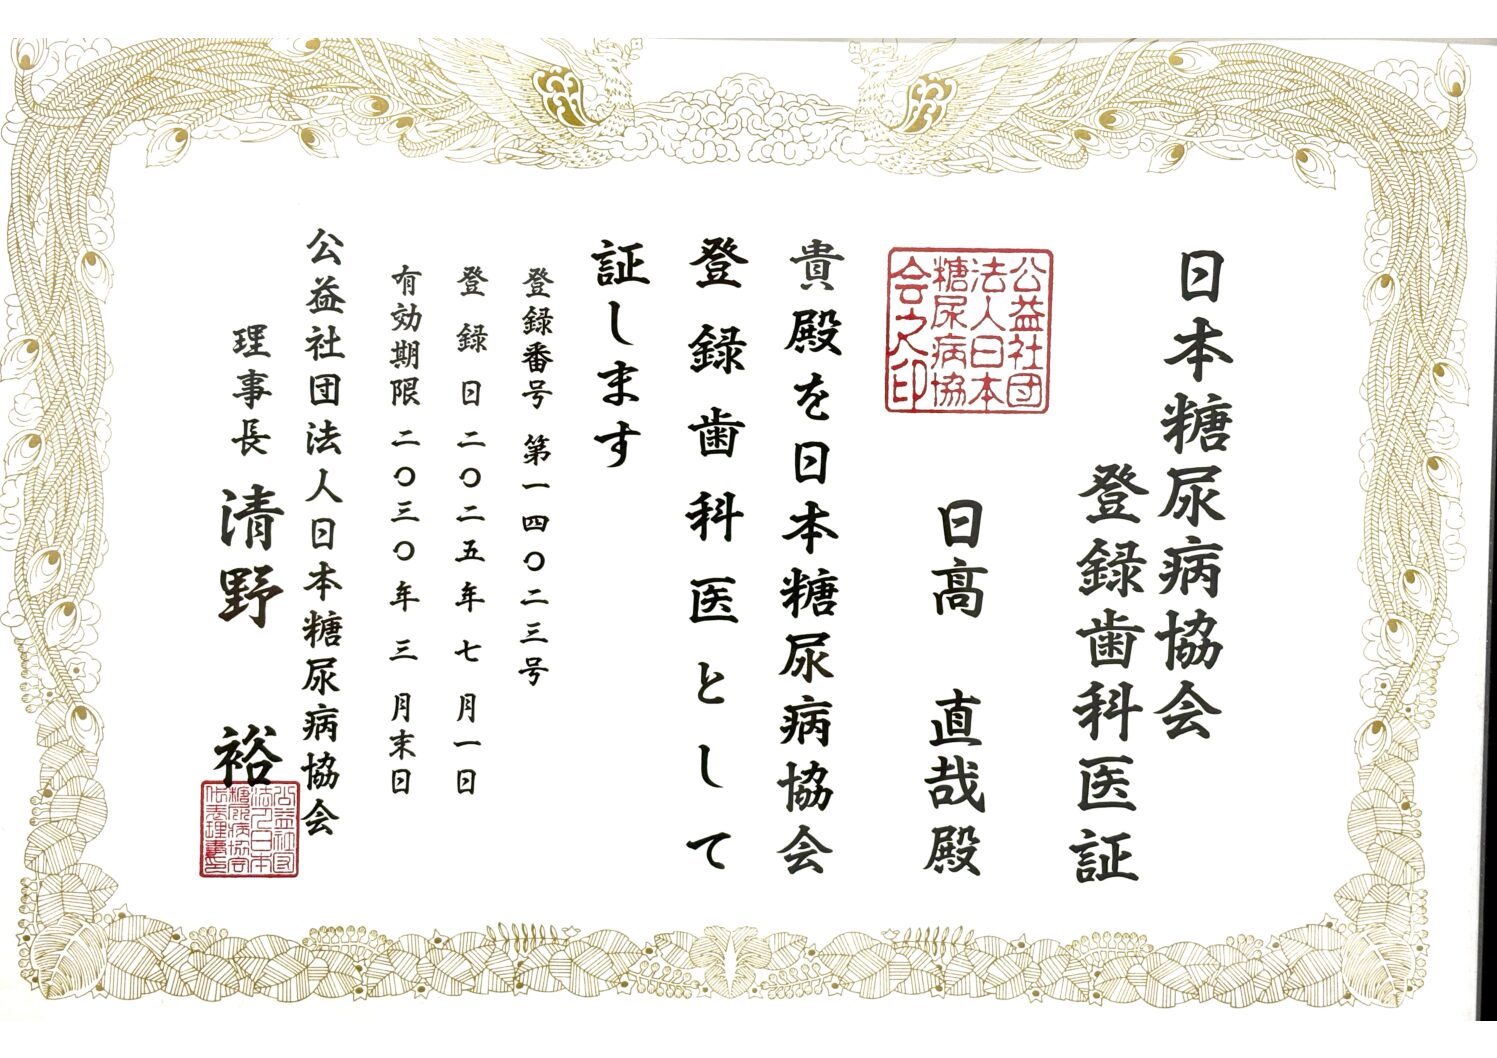 日本糖尿病協会
登録歯科医証
公益社団
法人日本
糖尿病協
会之印
日高 直哉殿
貴殿を日本糖尿病協会
登録歯科医として
証します
登録番号 第一四〇二三号
登録日 二〇二五年七月一日
有効期限 二〇三〇年三月末日
公益社団法人日本糖尿病協会
理事長 清野 裕
公益社団
法人日本
糖尿病協会
代表理事之印